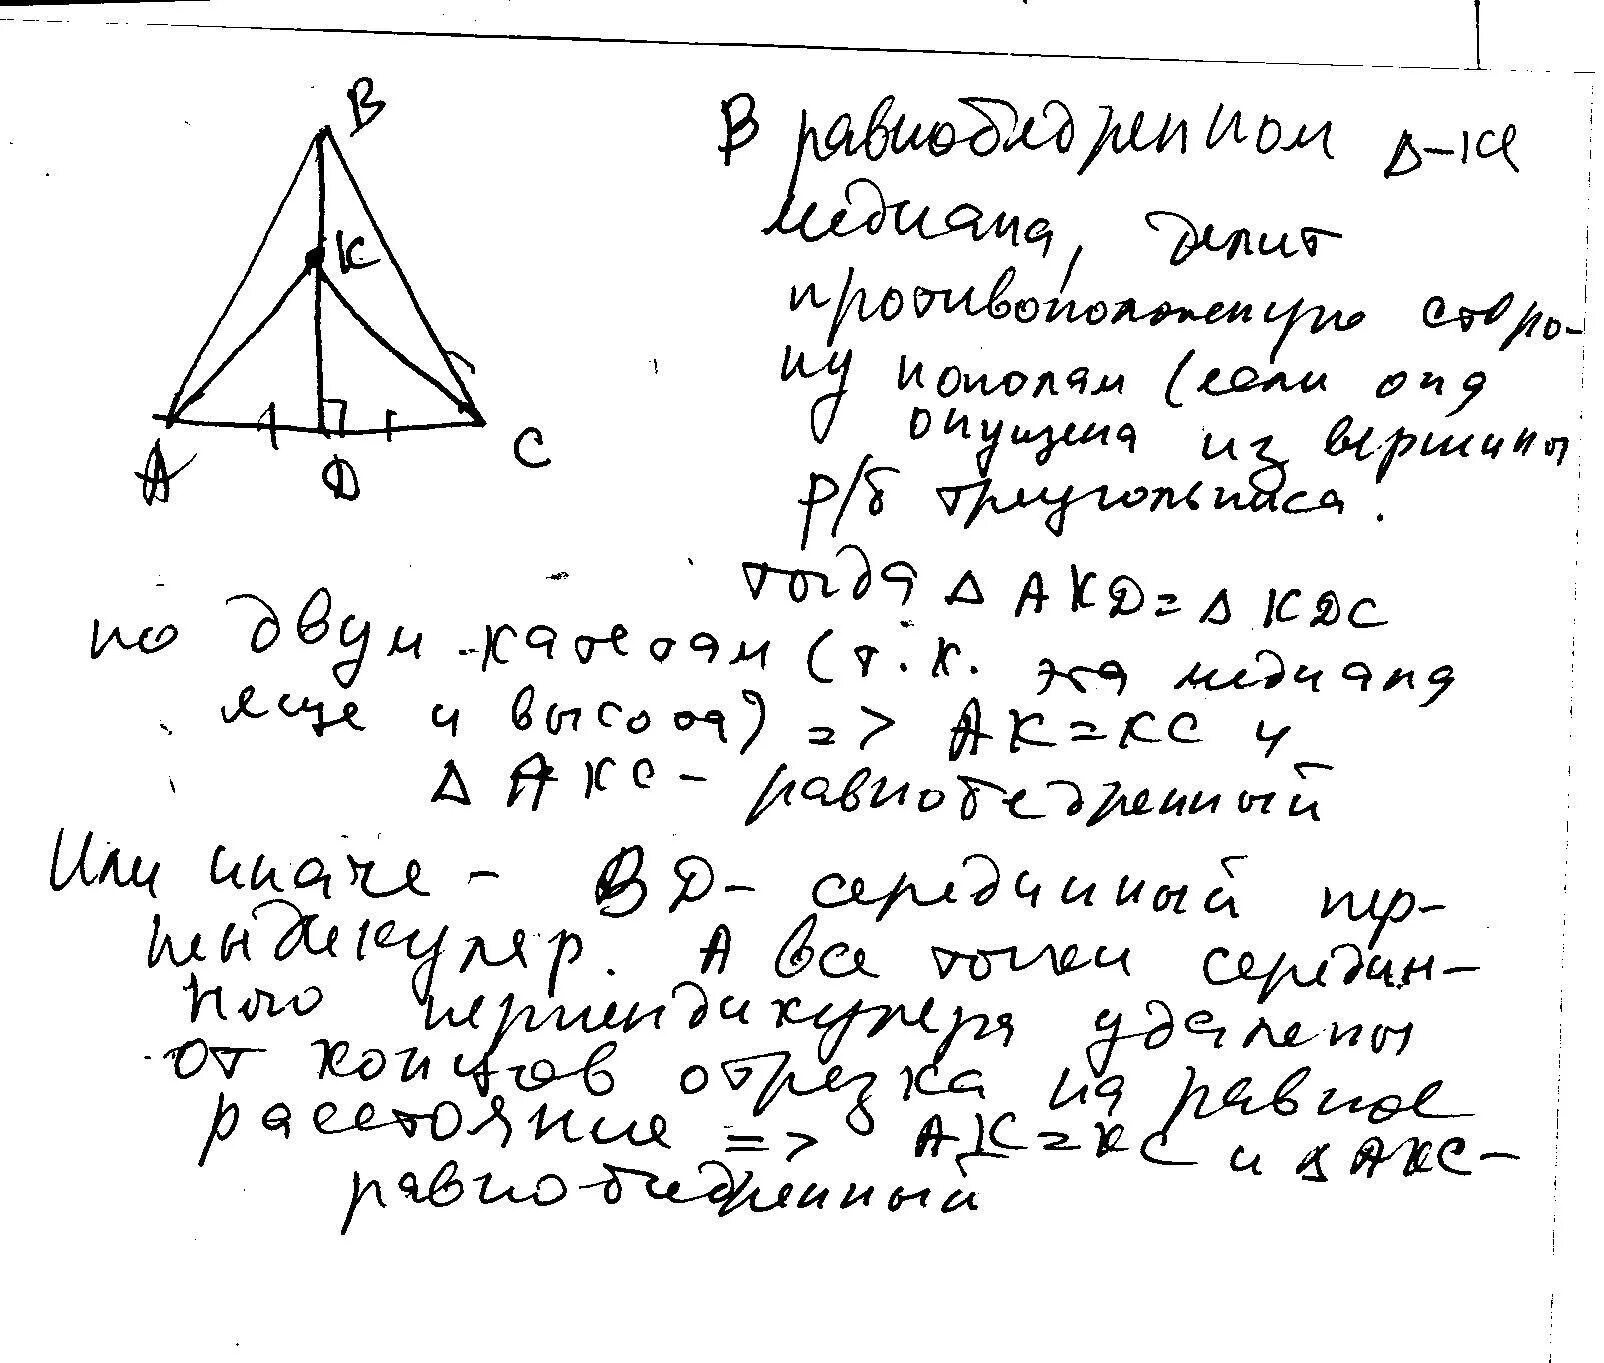 B
K
A
D
C
В равнобедренном Δ-ке
медиана, делит
противоположную сторо-
ну пополам (если она
опущена из вершины
р/б треугольника.
тогда Δ AKD = Δ KDC
по двум катетам (т.к. эта медиана
еще и высота) => AK = KC и
Δ AKC - равнобедренный
Или иначе - BD - серединный пер-
пендикуляр. А все точки середин-
ного перпендикуляра удалены
от концов отрезка на равное
расстояние => AK = KC и Δ AKC -
равнобедренный